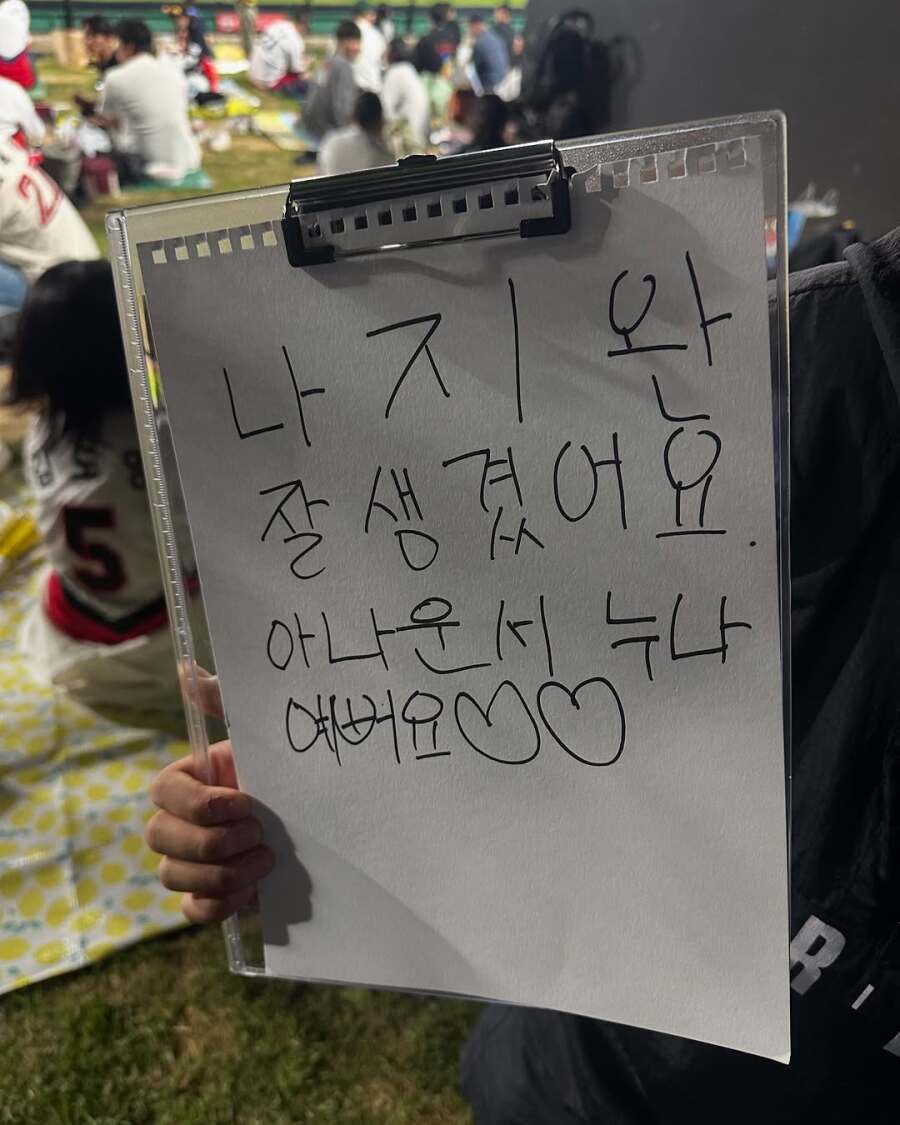 나지완
잘생겼어요.
아나운서 누나
예뻐요♡♡
5